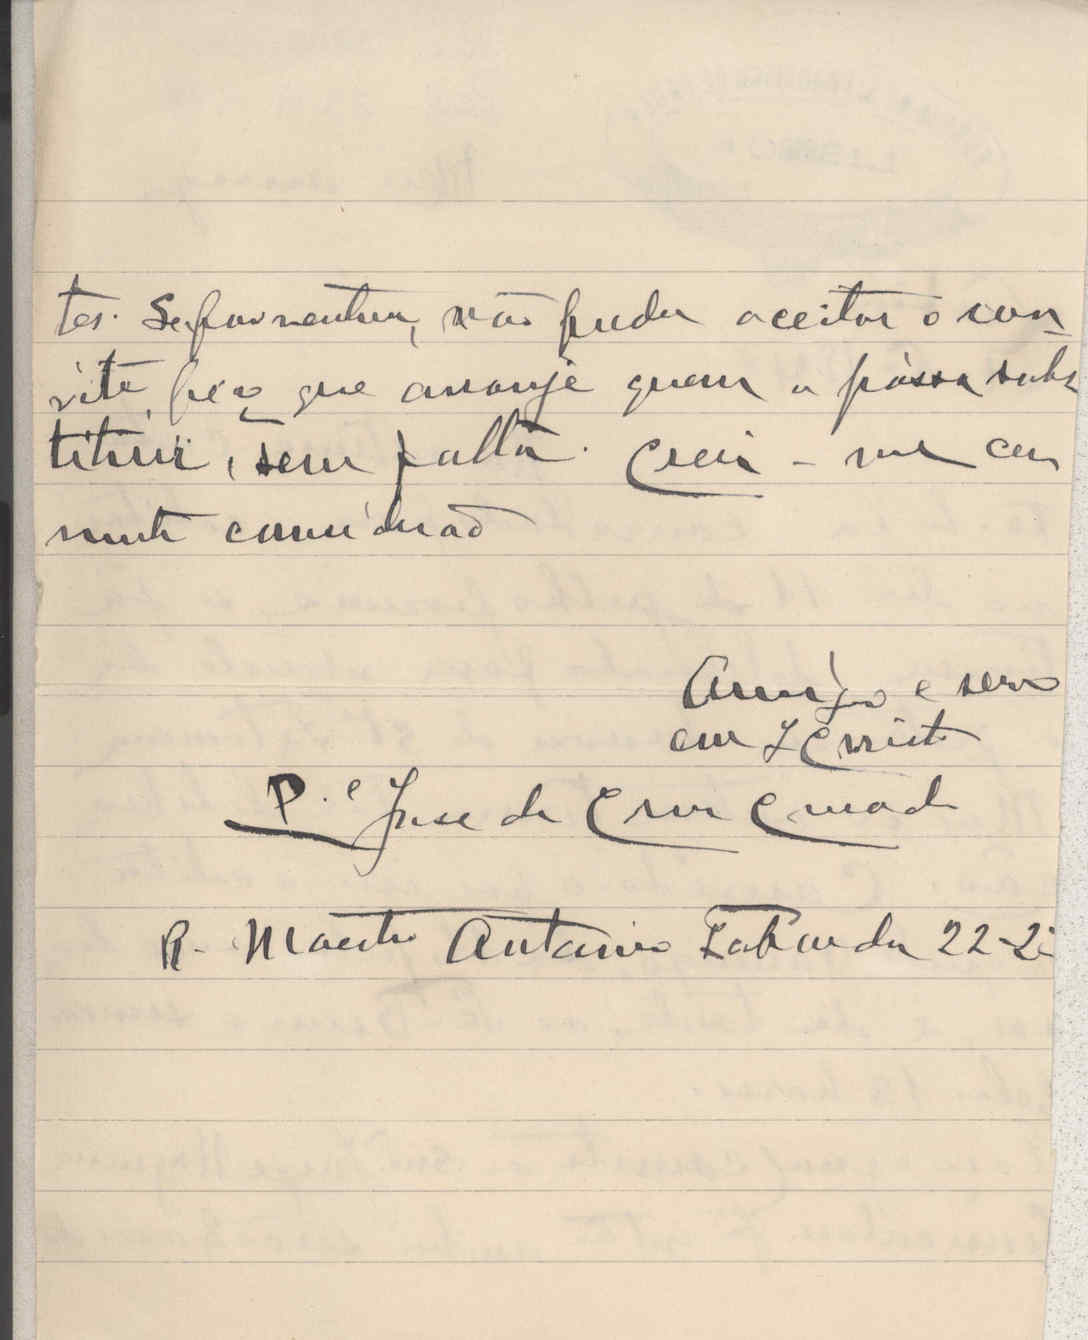 tes. Se, por ventura, não puder aceitar o con
vite, peço que arranje quem o póssa subs
tituir, sem falta. Creia-me com
muita consideração
Amigo e servo
em J Cristo
P.e José da Cruz
R. Maestro Antonio Taborda 22-2º